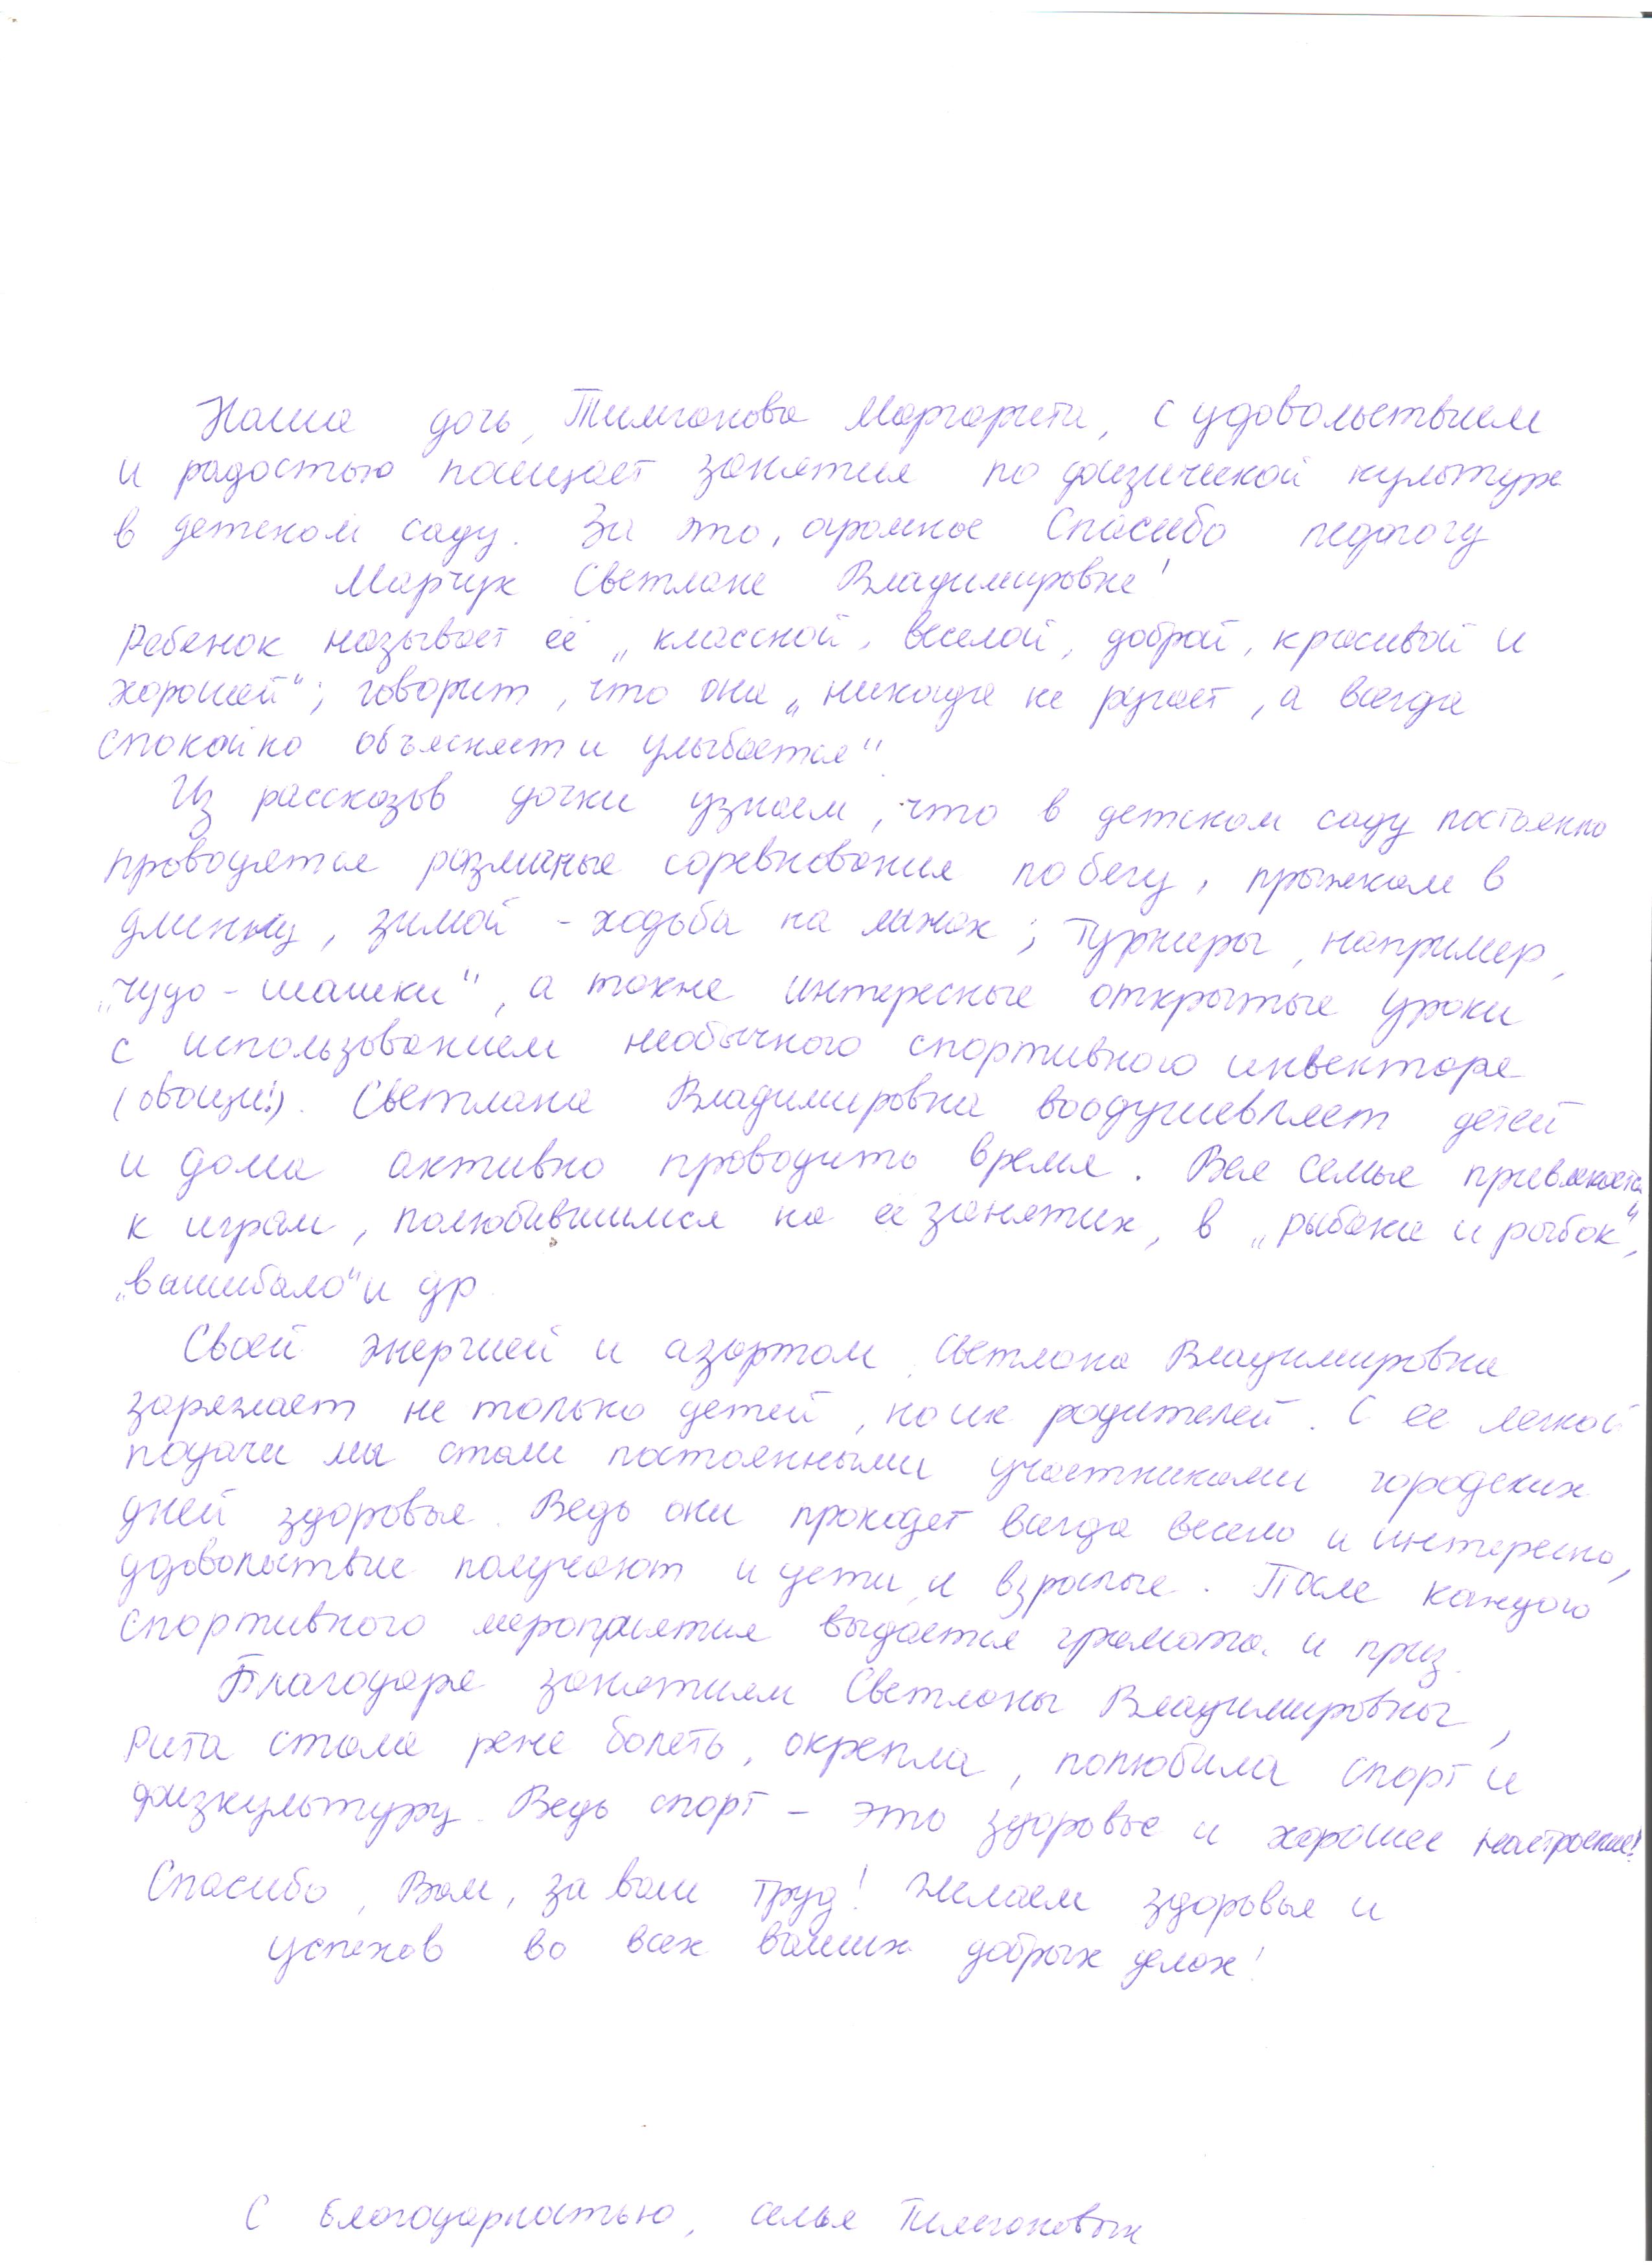 Наша дочь, Тимганова Маргарита, с удовольствием
и радостью посещает занятия по физической культуре
в детском саду. За это, огромное Спасибо педагогу
Марчук Светлане Владимировне!
Ребенок называет её „классной, веселой, доброй, красивой и
хорошей"; говорит, что она „никогда не ругает, а всегда
спокойно объясняет и улыбается".
Из рассказов дочки узнаем, что в детском саду постоянно
проводятся различные соревнования по бегу, прыжкам в
длинну, зимой - ходьба на лыжах; турниры, например,
„чудо-шашки", а также интересные открытые уроки
с использованием необычного спортивного инвенторя
(овощи!). Светлана Владимировна воодушевляет детей
и дома активно проводить время. Вся семья привлекается
к играм, полюбившимся на её занятиях, в „рыбака и рыбок",
„вышибало" и др.
Своей энергией и азартом Светлана Владимировна
заряжает не только детей, но их родителей. С ее легкой
подачи мы стали постоянными участниками городских
дней здоровья. Ведь они проходят всегда весело и интересно,
удовольствие получают и дети, и взрослые. После каждого
спортивного мероприятия выдается грамота и приз.
Благодаря занятиям Светланы Владимировны,
Рита стала реже болеть, окрепла, полюбила спорт и
физкультуру. Ведь спорт - это здоровье и хорошее настроение!
Спасибо, Вам, за ваш труд! Желаем здоровья и
успехов во всех ваших добрых делах!
С благодарностью, семья